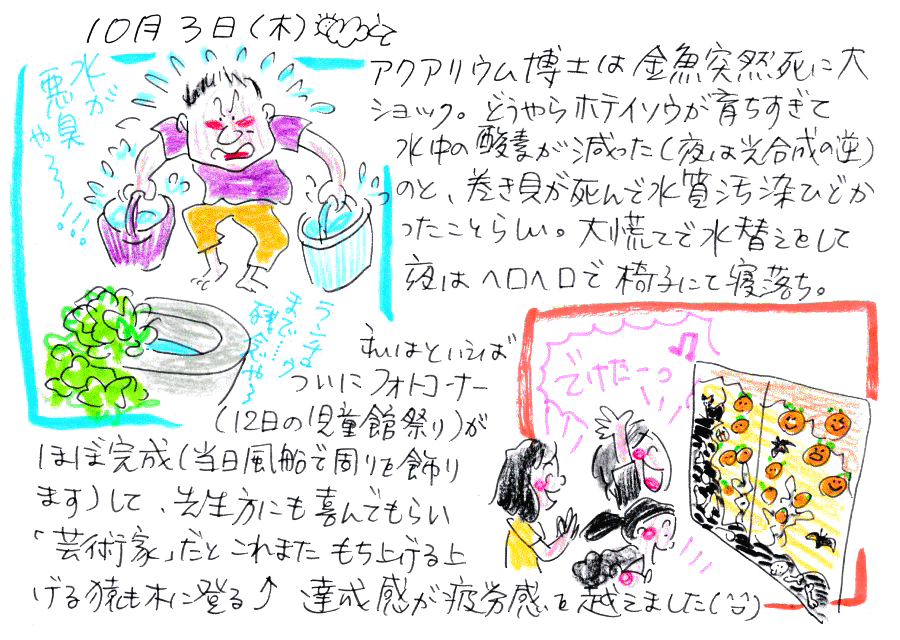 10月3日(木)
アクアリウム博士は金魚突然死に大
ショック。どうやらホテイソウが育ちすぎて
水中の酸素が減った(夜は光合成の逆)
のと、巻き貝が死んで水質汚染ひどか
ったことらしい。大慌てで水替えをして
夜はヘロヘロで椅子にて寝落ち。
水が
悪臭
や〜〜!!!
ランチは
まで……ゥ
私はといえば
ついにフォトコーナー
(12日の児童館祭り)が
ほぼ完成(当日風船で周りを飾り
ます)して、先生方にも喜んでもらい
「芸術家」だとこれまたもち上げる上
げる猿も木に登る↑ 達成感が疲労感を越えました(¨)
できたーっ